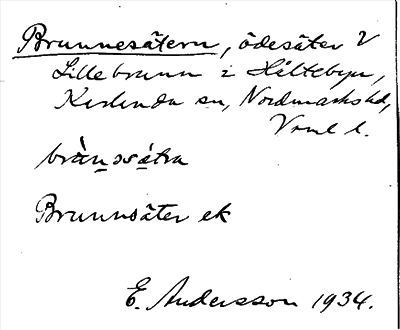 Brunnesätern, ödesäter V
Lillebrunn i Hältebyn,
Karlanda sn, Nordmarks hd,
Vrml l.
brùn̲sä́tra
Brunnsäter ek
E. Andersson 1934.